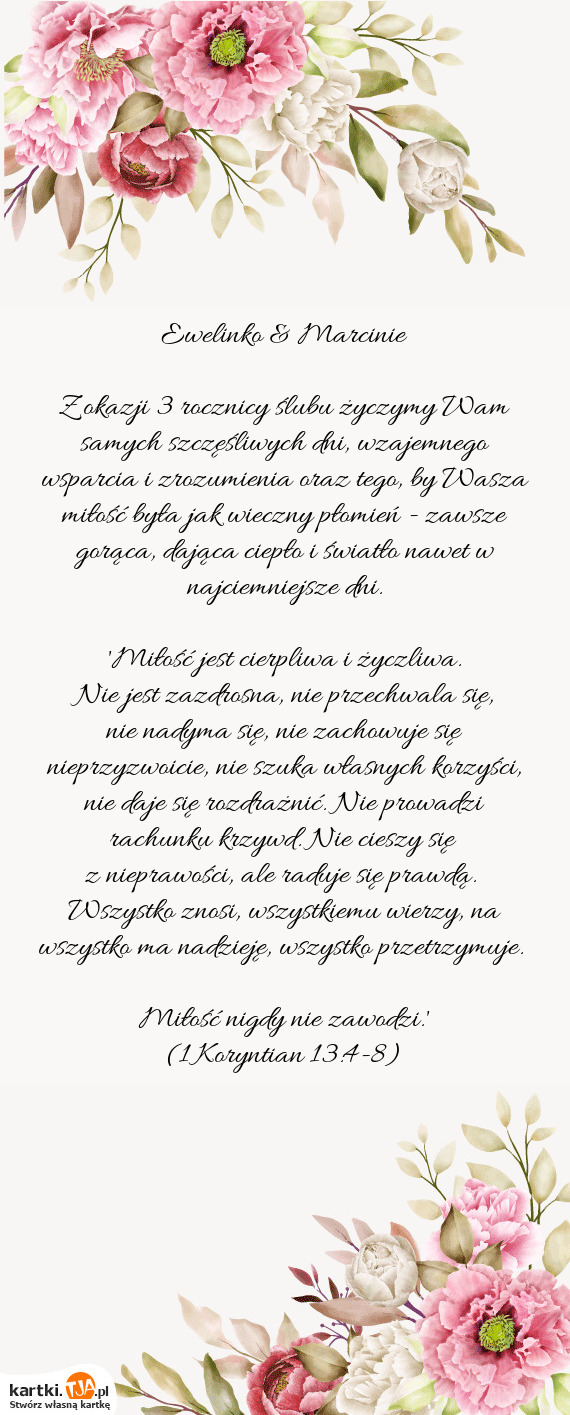 Ewelinko & Marcinie
Z okazji 3 rocznicy ślubu życzymy Wam
samych szczęśliwych dni, wzajemnego
wsparcia i zrozumienia oraz tego, by Wasza
miłość była jak wieczny płomień - zawsze
gorąca, dająca ciepło i światło nawet w
najciemniejsze dni.
'Miłość jest cierpliwa i życzliwa.
Nie jest zazdrosna, nie przechwala się,
nie nadyma się, nie zachowuje się
nieprzyzwoicie, nie szuka własnych korzyści,
nie daje się rozdrażnić. Nie prowadzi
rachunku krzywd. Nie cieszy się
z nieprawości, ale raduje się prawdą.
Wszystko znosi, wszystkiemu wierzy, na
wszystko ma nadzieję, wszystko przetrzymuje.
Miłość nigdy nie zawodzi.'
(1 Koryntian 13:4-8)
kartki.TJA.pl
Stwórz własną kartkę